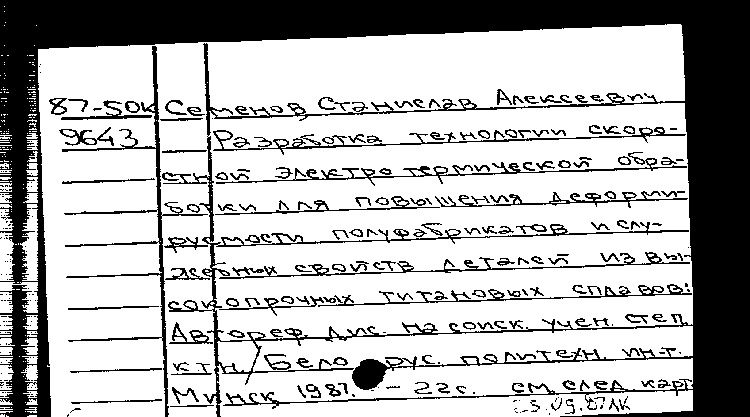 87-50к Семенов Станислав Алексеевич
9643 Разработка технологии скоро-
стной электротермической обра-
ботки для повышения деформи-
руемости полуфабрикатов и слу-
жебных свойств деталей из вы-
сокопрочных титановых сплавов:
Автореф. дис. на соиск. учен. степ.
к.т.н. / Бело рус. политехн. ин-т.
Минск, 1987. - 22с. см. след. карт